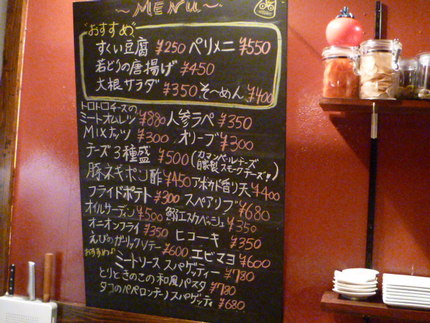 ~MENU~
"おすすめ"
すくい豆腐 ¥250 ペリメニ ¥550
若どりの唐揚げ ¥450
大根サラダ ¥350 そ〜めん ¥400
トロトロチーズの
ミートオムレツ ¥880 人参ラペ ¥350
MIXナッツ ¥300 オリーブ ¥300
チーズ3種盛 ¥500 (カマンベールチーズ
燻製スモークチーズ)
豚ネギポン酢 ¥450 アボカド ¥400
フライドポテト ¥300 スペアリブ ¥680
オイルサーディン ¥500 鰯エスカベッシュ ¥350
オニオンフライ ¥350 ヒコーキ ¥350
えびのガーリックソテー ¥600 エビマヨ ¥600
おすすめ!! ミートソーススパゲッティー ¥780
とりときのこの和風パスタ ¥780
タコのペペロンチーノスパゲッティ ¥680